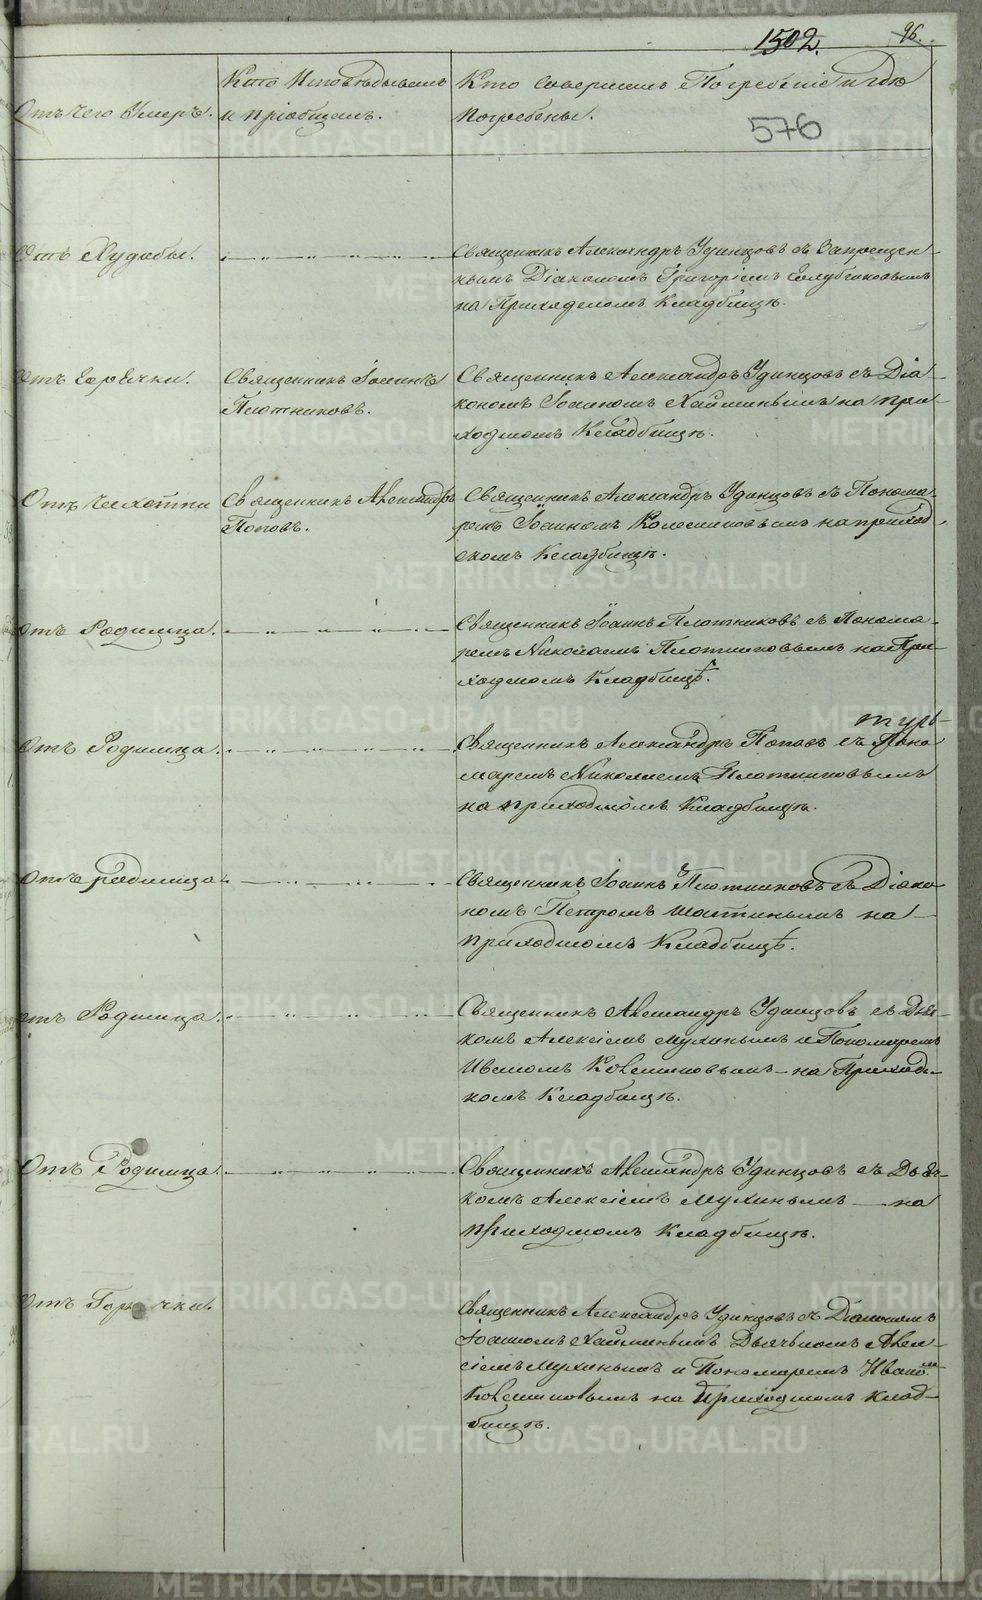 1502. 96.
Отъ чего Умеръ. Кто Исповѣдывалъ Кто Совершалъ Погребеніе и гдѣ
и пріобщалъ. погребены.
576
Отъ Худобы. Священникъ Александръ Удинцовъ съ Запрещен-
нымъ Діакономъ Григоріемъ
на Приходскомъ Кладбищѣ.
Отъ Горячки. Священникъ Іоаннъ Священникъ Александръ Удинцовъ съ Діа-
Плотниковъ. кономъ Іоанномъ на при-
ходскомъ Кладбищѣ.
Отъ Чахотки Священникъ Александръ Священникъ Александръ Удинцовъ съ Понома-
Поповъ. ремъ Іоанномъ на приход-
скомъ Кладбищѣ.
Отъ Родимца. Священникъ Іоаннъ Плотниковъ съ Понома-
ремъ Николаемъ Плотниковымъ на При-
ходскомъ Кладбищѣ.
Отъ Родимца. Священникъ Александръ Поповъ съ Поно-
маремъ Николаемъ Плотниковымъ
на приходскомъ Кладбищѣ.
Отъ родимца. Священникъ Іоаннъ Плотниковъ съ Діако-
номъ Петромъ на
приходскомъ Кладбищѣ.
отъ Родимца. Священникъ Александръ Удинцовъ съ Дья-
комъ Алексіемъ Мухинымъ и Пономаремъ
Иваномъ на Приход-
комъ Кладбищѣ.
Отъ Родимца. Священникъ Александръ Удинцовъ съ Дьяч-
комъ Алексіемъ Мухинымъ на
приходскомъ Кладбищѣ.
Отъ Горячки. Священникъ Александръ Удинцовъ съ Діакономъ
Іоанномъ Дьячкомъ Алек-
сіемъ Мухинымъ и Пономаремъ Ивано-
на Приходскомъ Клад-
бищѣ.
METRIKI.GASO-URAL.RU